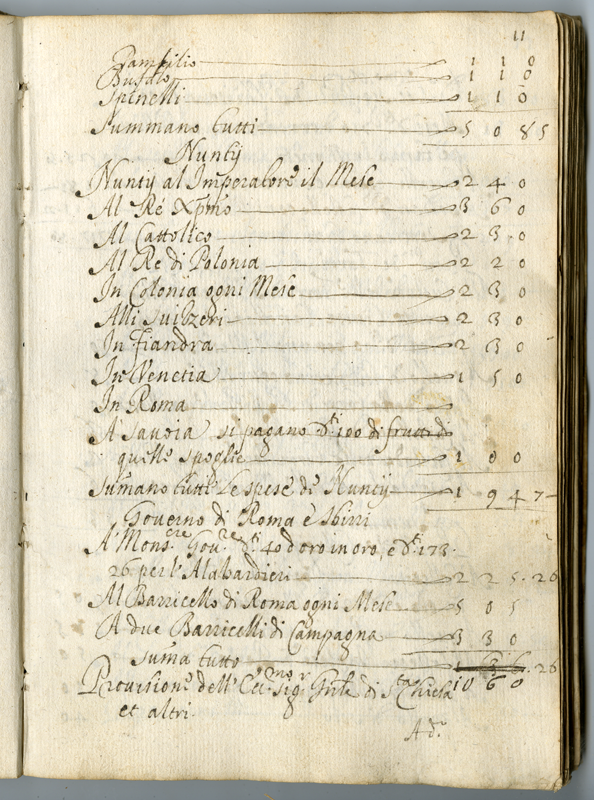 11
Pamfilio 1 1 0
Bufalo 1 1 0
Spinelli 1 1 0
Summano tutti 5 0 8 5
Nuntij
Nuntij al Imperatore il Mese 2 4 0
Al Ré Xpmo 3 6 0
Al Cattolico 2 3 0
Al Re di Polonia 2 2 0
In Colonia ogni Mese 2 3 0
Alli Suizzeri 2 3 0
In Fiandra 2 3 0
In Venetia 1 5 0
In Roma
A Savoia si pagano d.ti 100 di frutti di
quelle spoglie 1 0 0
Sumano tutte le spese de Nuntij 1 9 4 7
Governo di Roma è Sbirri
A Mons.re Gov.re d.ti 40 d'oro in oro, è d.ti 173.
26 per l'Alabardieri 2 2 5. 26
Al Barricello di Roma ogni Mese 5 0 5
A due Barricelli di Campagna 3 3 0
Suma tutto 26
1 0 6 0
Provisione dell' Ecc.mo Sig.r Gnle di S.ta Chiesa
et altri.
A d.